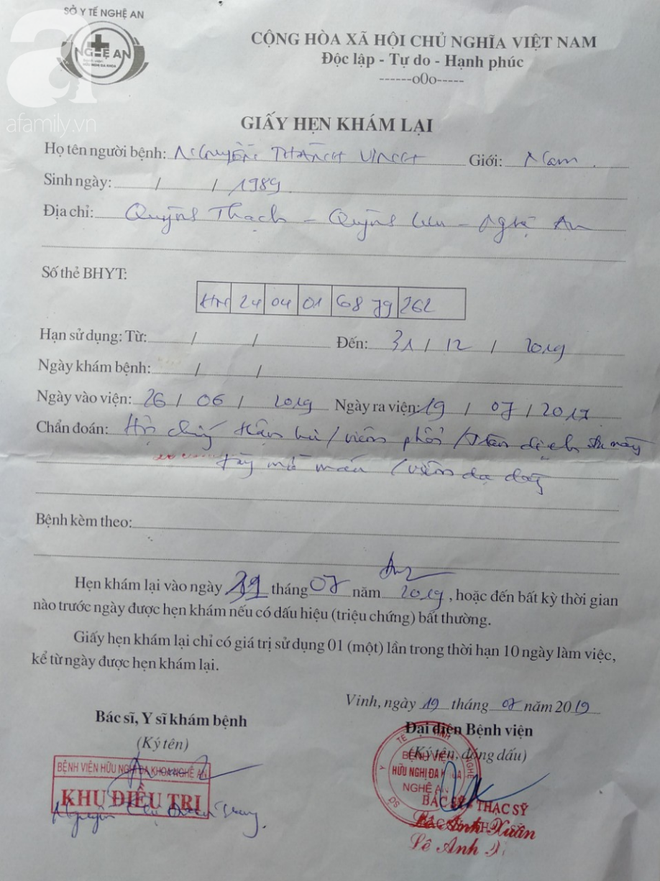 SỞ Y TẾ NGHỆ AN
NGHỆ AN
afamily.vn
CỘNG HÒA XÃ HỘI CHỦ NGHĨA VIỆT NAM
Độc lập - Tự do - Hạnh phúc
------o0o-----
GIẤY HẸN KHÁM LẠI
Họ tên người bệnh: NGUYỄN THÀNH VINH Giới: Nam
Sinh ngày: / / 1989
Địa chỉ: Quỳnh Thạch - Quỳnh Lưu - Nghệ An
Số thẻ BHYT:
HN 24 04 01 68 79 262
Hạn sử dụng: Từ: / / Đến: 31 / 12 / 2019
Ngày khám bệnh: / /
Ngày vào viện: 26 / 06 / 2019 Ngày ra viện: 19 / 07 / 2017
Chẩn đoán: Hội chứng thận hư / viêm phổi / tràn dịch màng
/ viêm dạ dày
Bệnh kèm theo:
Hẹn khám lại vào ngày 29 tháng 07 năm 2019, hoặc đến bất kỳ thời gian
nào trước ngày được hẹn khám nếu có dấu hiệu (triệu chứng) bất thường.
Giấy hẹn khám lại chỉ có giá trị sử dụng 01 (một) lần trong thời hạn 10 ngày làm việc,
kể từ ngày được hẹn khám lại.
Vinh, ngày 19 tháng 7 năm 2019
Bác sĩ, Y sĩ khám bệnh
(Ký tên)
BỆNH VIỆN HỮU NGHỊ ĐA KHOA NGHỆ AN
KHU ĐIỀU TRỊ
Nguyễn Thị
Đại diện Bệnh viện
(Ký tên, đóng dấu)
BỆNH VIỆN
HỮU NGHỊ ĐA KHOA
NGHỆ AN
BÁC SỸ THẠC SỸ
Lê Anh Xuân
Lê Anh